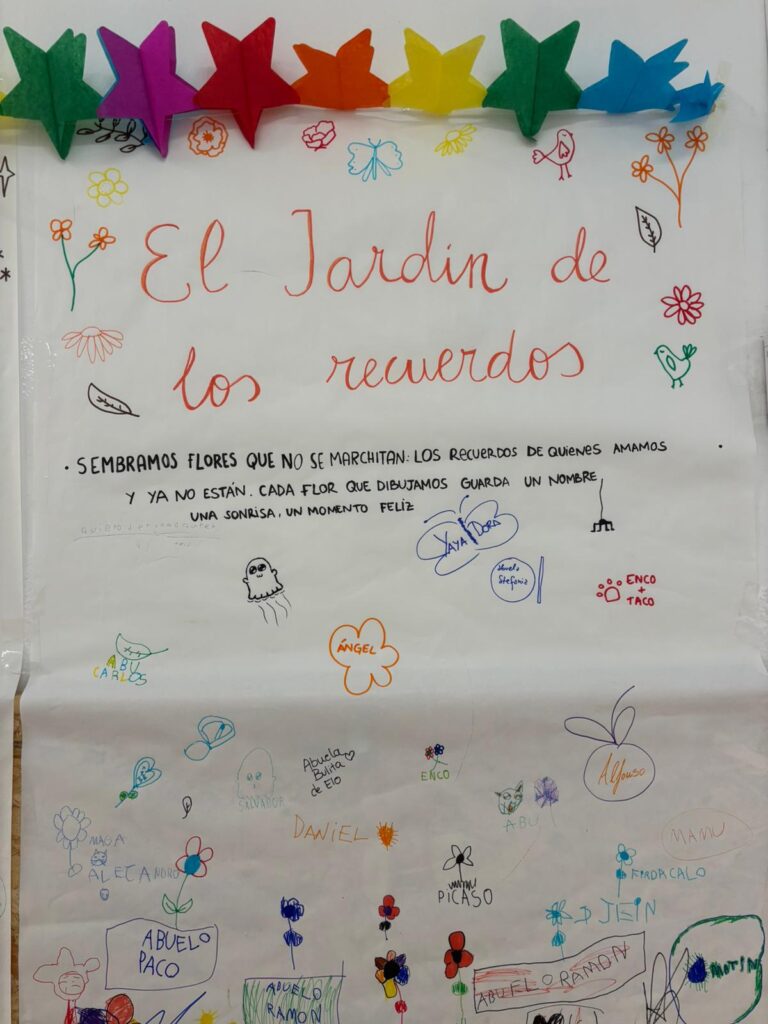 El Jardin de
los recuerdos
· SEMBRAMOS FLORES QUE NO SE MARCHITAN: LOS RECUERDOS DE QUIENES AMAMOS ·
Y YA NO ESTÁN. CADA FLOR QUE DIBUJAMOS GUARDA UN NOMBRE,
UNA SONRISA, UN MOMENTO FELIZ
YAYA DORA
Stefania
ENCO
+
TACO
ÁNGEL
ABU
CARLOS
Abuela
Bulita
de Elo
ENCO
Alfonso
SALVADOR
ABU
DANIEL
MAMU
MAGA
ALEJANDRO
PICASO
JEIN
ABUELO
PACO
ABUELO RAMON
ABUELO
RAMON
MOTIN